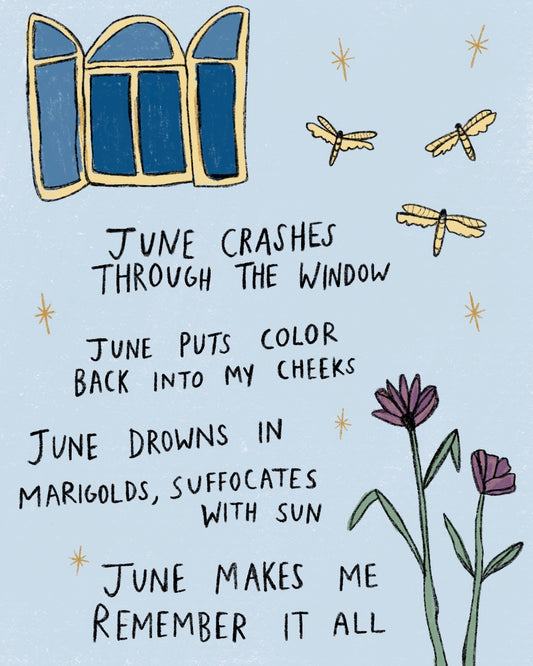 JUNE CRASHES
THROUGH THE WINDOW
JUNE PUTS COLOR
BACK INTO MY CHEEKS
JUNE DROWNS IN
MARIGOLDS, SUFFOCATES
WITH SUN
JUNE MAKES ME
REMEMBER IT ALL